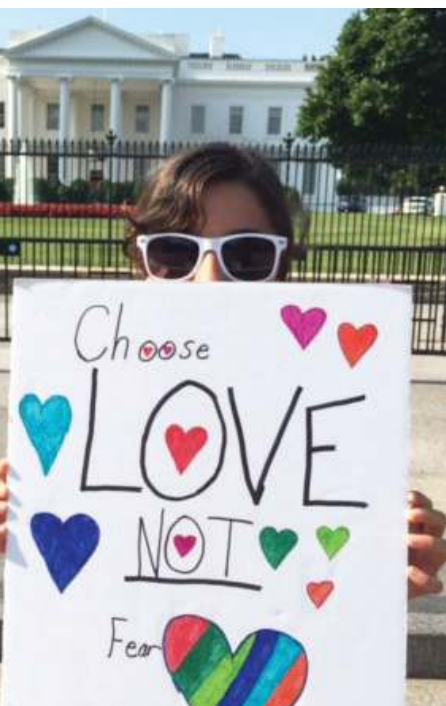 Choose
LOVE
NOT
Fear